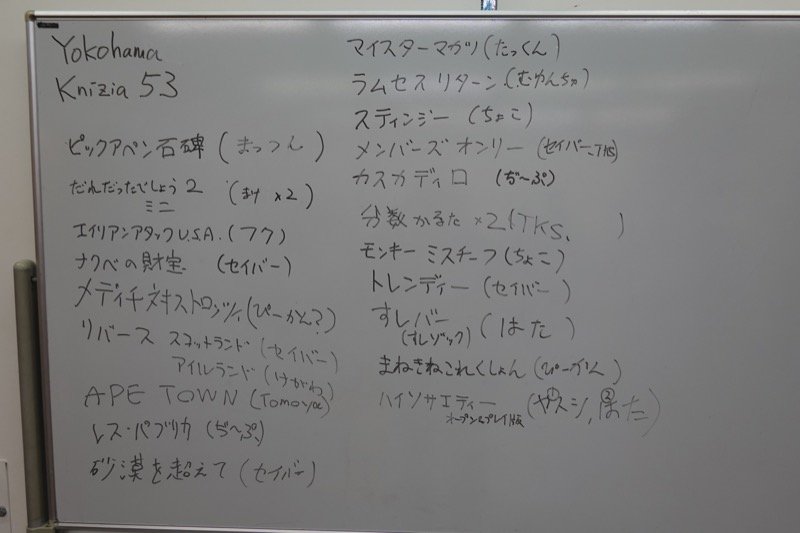 Yokohama
Knizia 53
ピックアペン石碑 (まっつん)
だれだったでしょう2 (まけ×2)
ミニ
エイリアンアタックU.S.A. (フク)
ナクベの財宝 (セイバー)
メディチ対ストロッツィ (ぴーかん?)
リバース スコットランド (セイバー)
アイルランド (けがわ)
APE TOWN (Tomoya)
レス・パブリカ (ぢ〜ぷ)
砂漠を超えて (セイバー)
マイスターマガツ (たっくん)
ラムセスリターン (むゆんちゅ)
スティンジー (ちょこ)
メンバーズオンリー (セイバー、TKS)
カスカディロ (ぢ〜ぷ)
分数かるた ×2 (TKS、 )
モンキーミスチーフ (ちょこ)
トレンディー (セイバー)
すしバー (はた)
(すしゾック)
まねきねこれくしょん (ぴーかん)
ハイソサエティー (ヤスシ, はた)
オープン&プレイ版